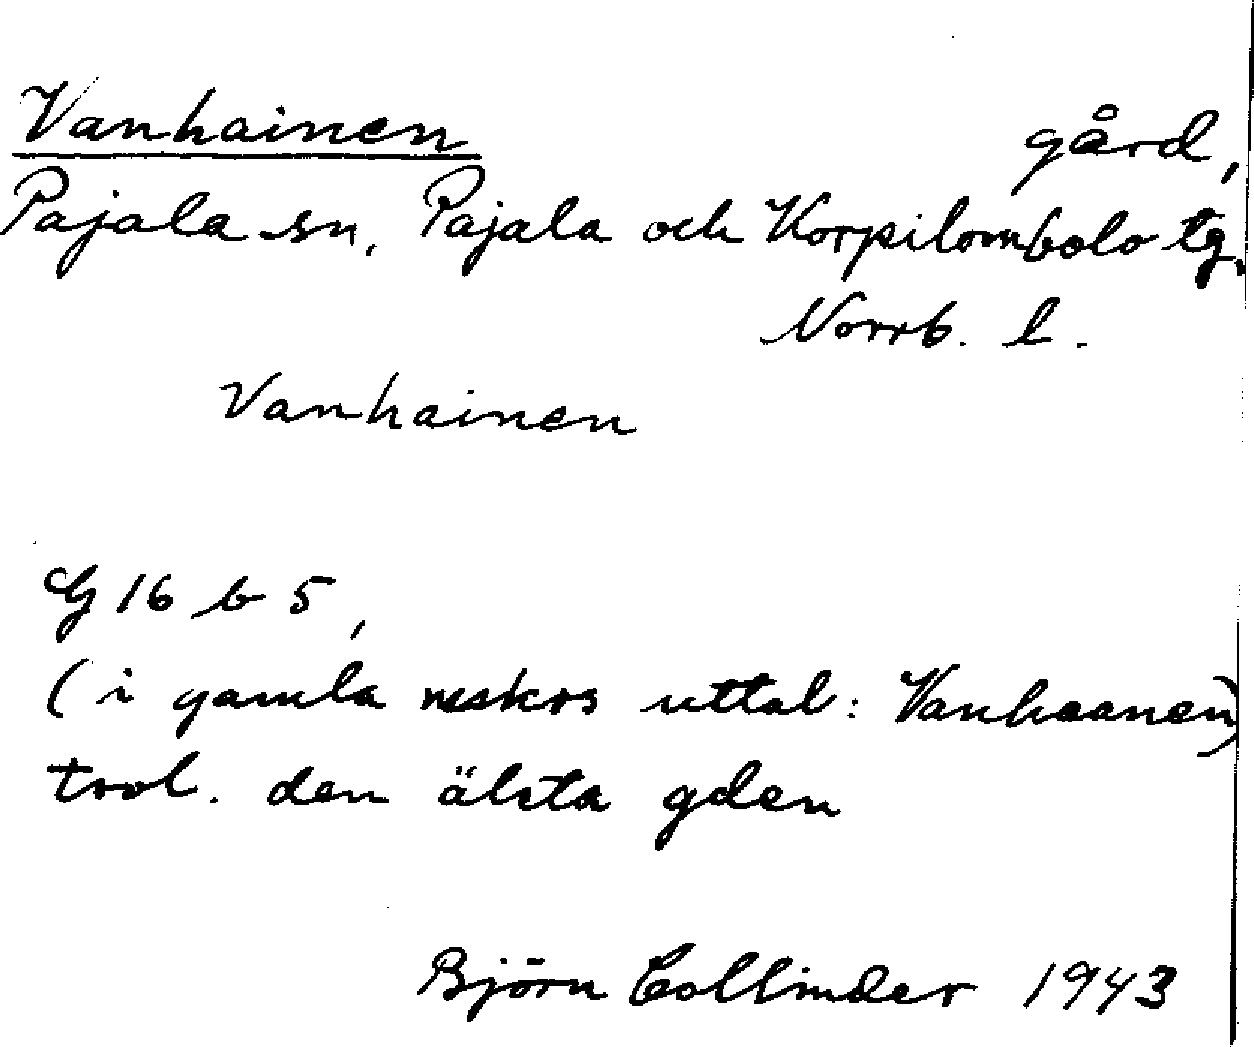 Vanhainen gård,
Pajala sn, Pajala och Korpilombolo tg,
Norrb. l.
Vanhainen
G 16 b 5,
(i gamla mskrs uttal: Vanhaanen)
trol. den älsta gden
Björn Collinder 1943